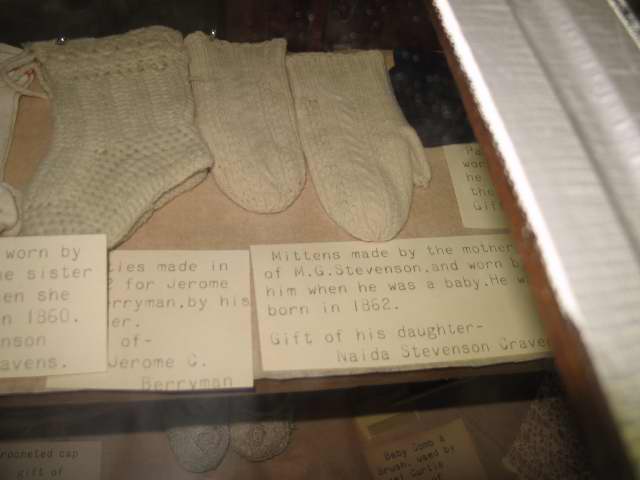 worn by
sister
she
n 1860.
nson
avens.
ties made in
2 for Jerome
rryman, by his
er.
of-
Jerome C.
Berryman
Mittens made by the mother
of M.G.Stevenson.and worn b
him when he was a baby.He w
born in 1862.
Gift of his daughter-
Naida Stevenson Crave
wor
he
the
Gift
rocheted cap
gift of
Baby Comb &
Brush, used by
Curtis